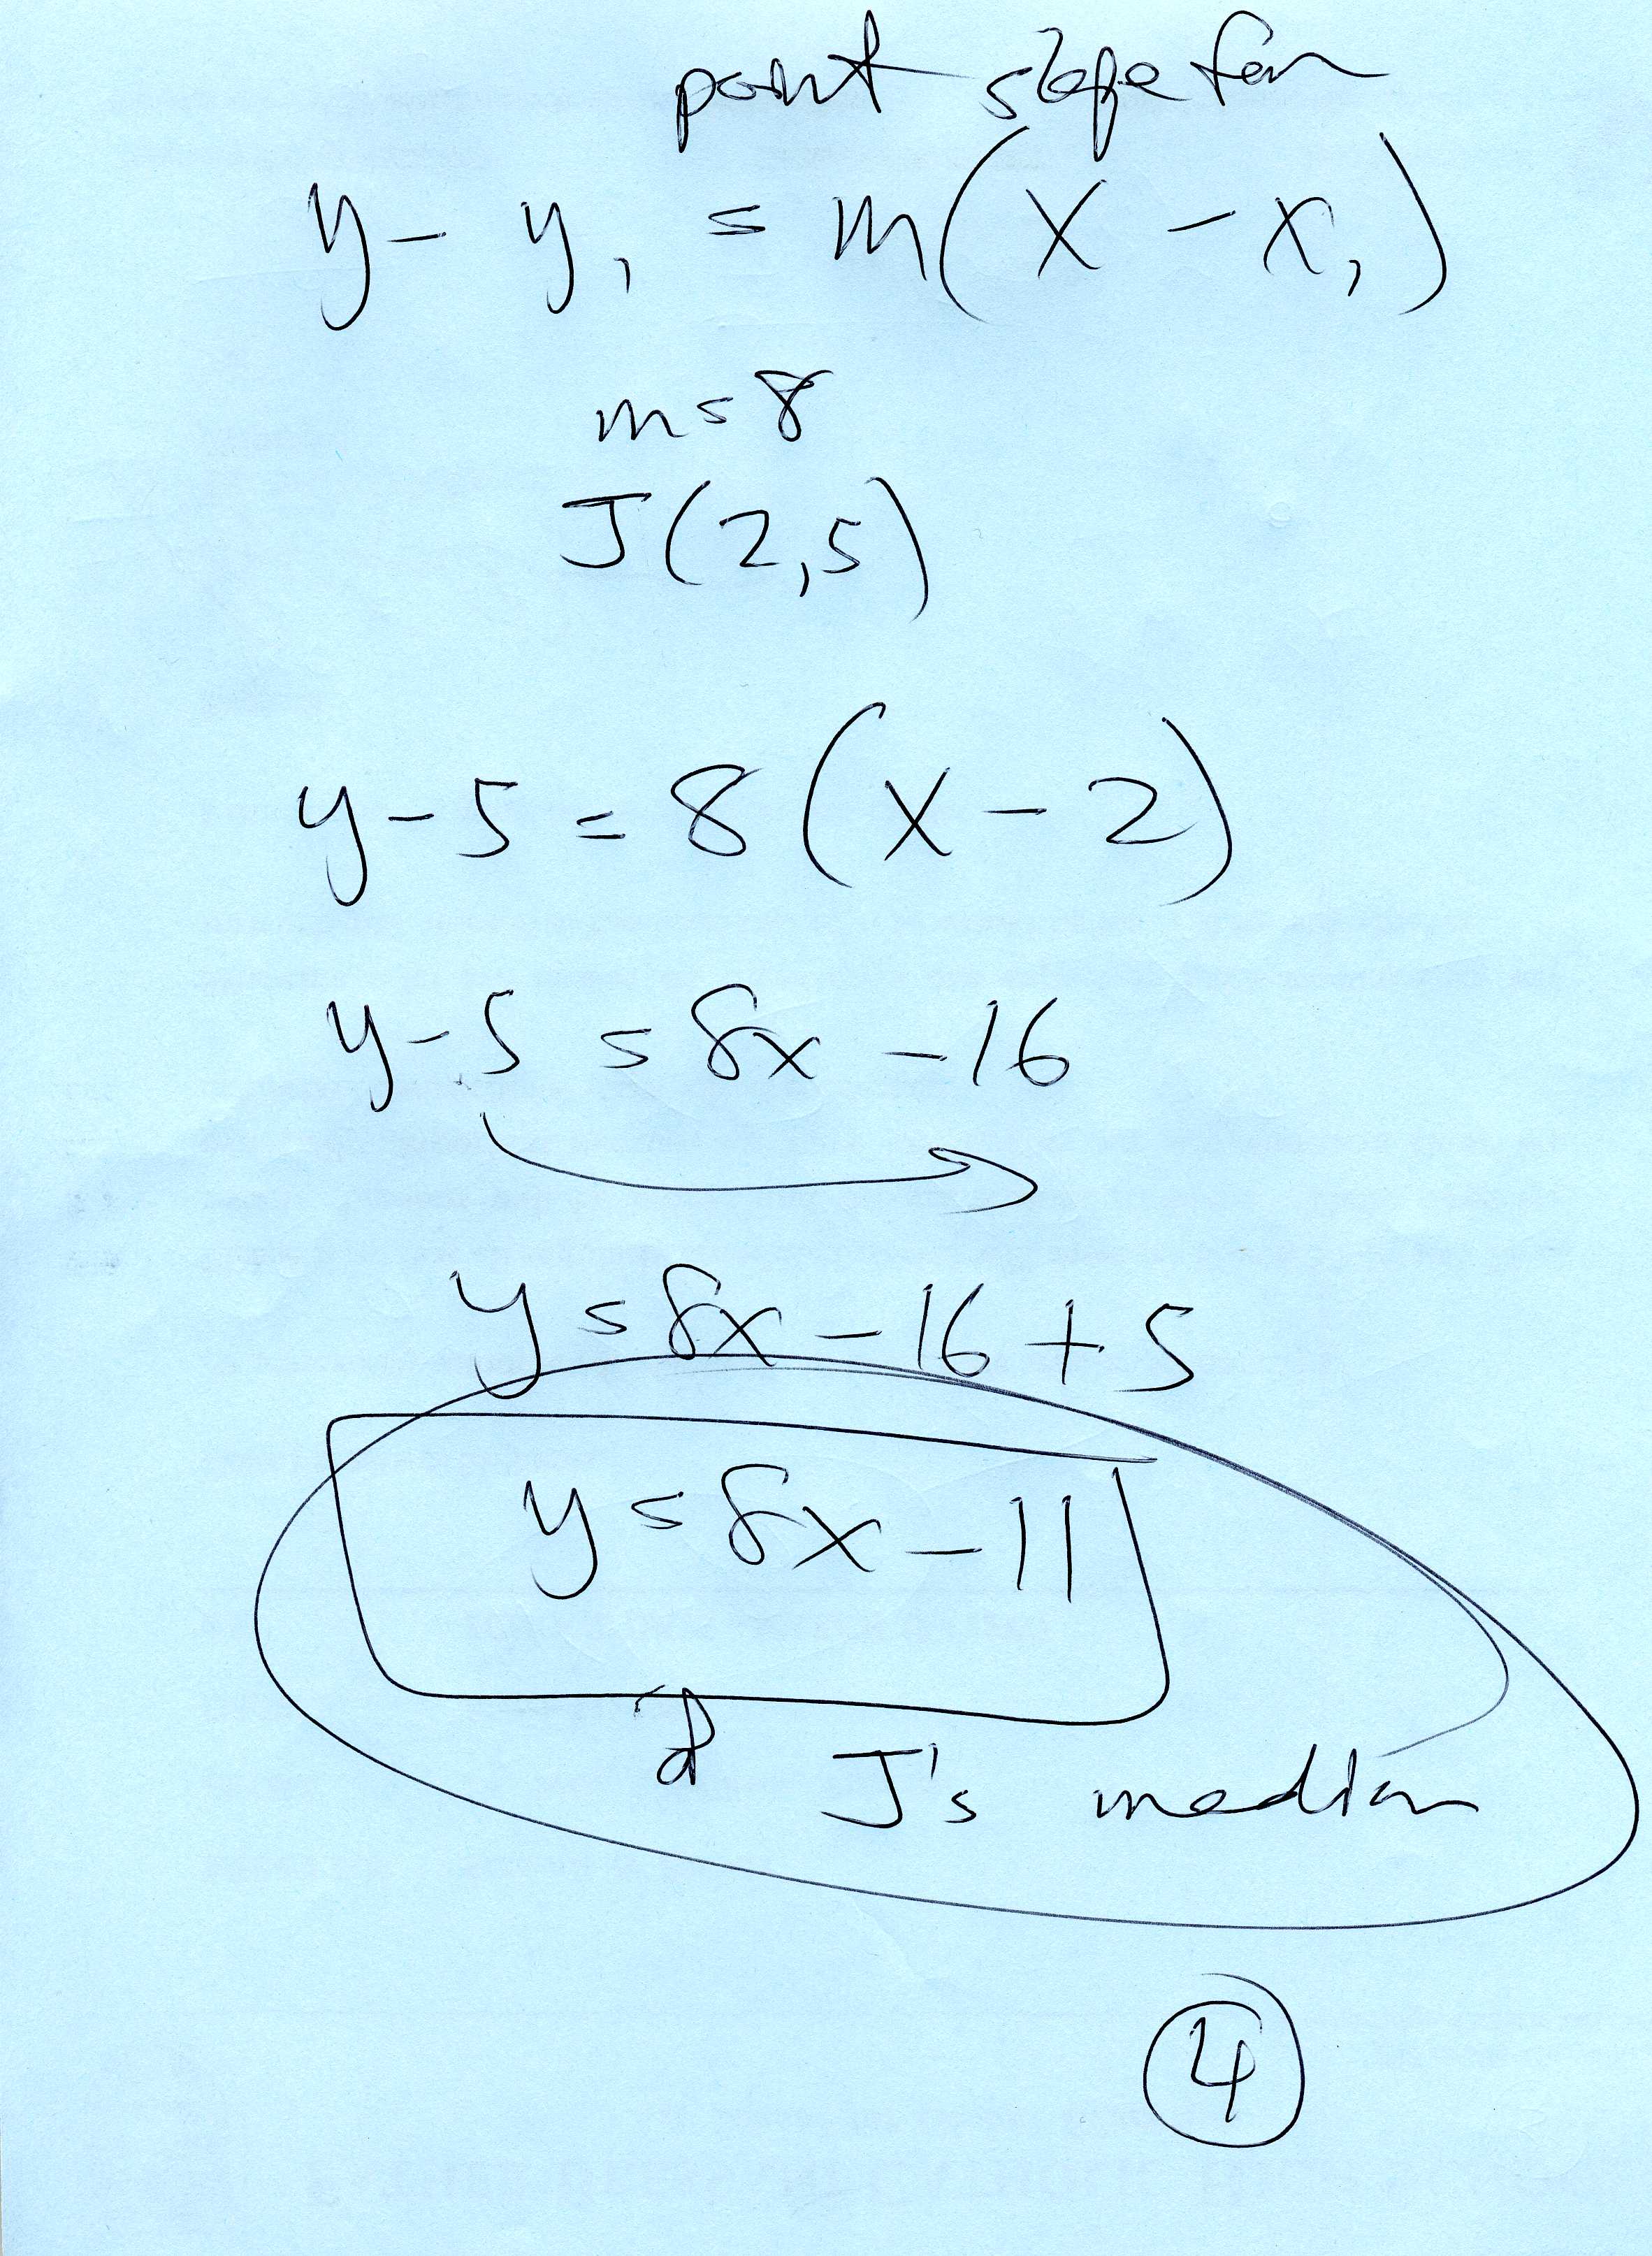 point slope form
y - y₁ = m(x - x₁)
m = 8
J(2,5)
y - 5 = 8(x - 2)
y - 5 = 8x - 16
y = 8x - 16 + 5
y = 8x - 11
J's median
4